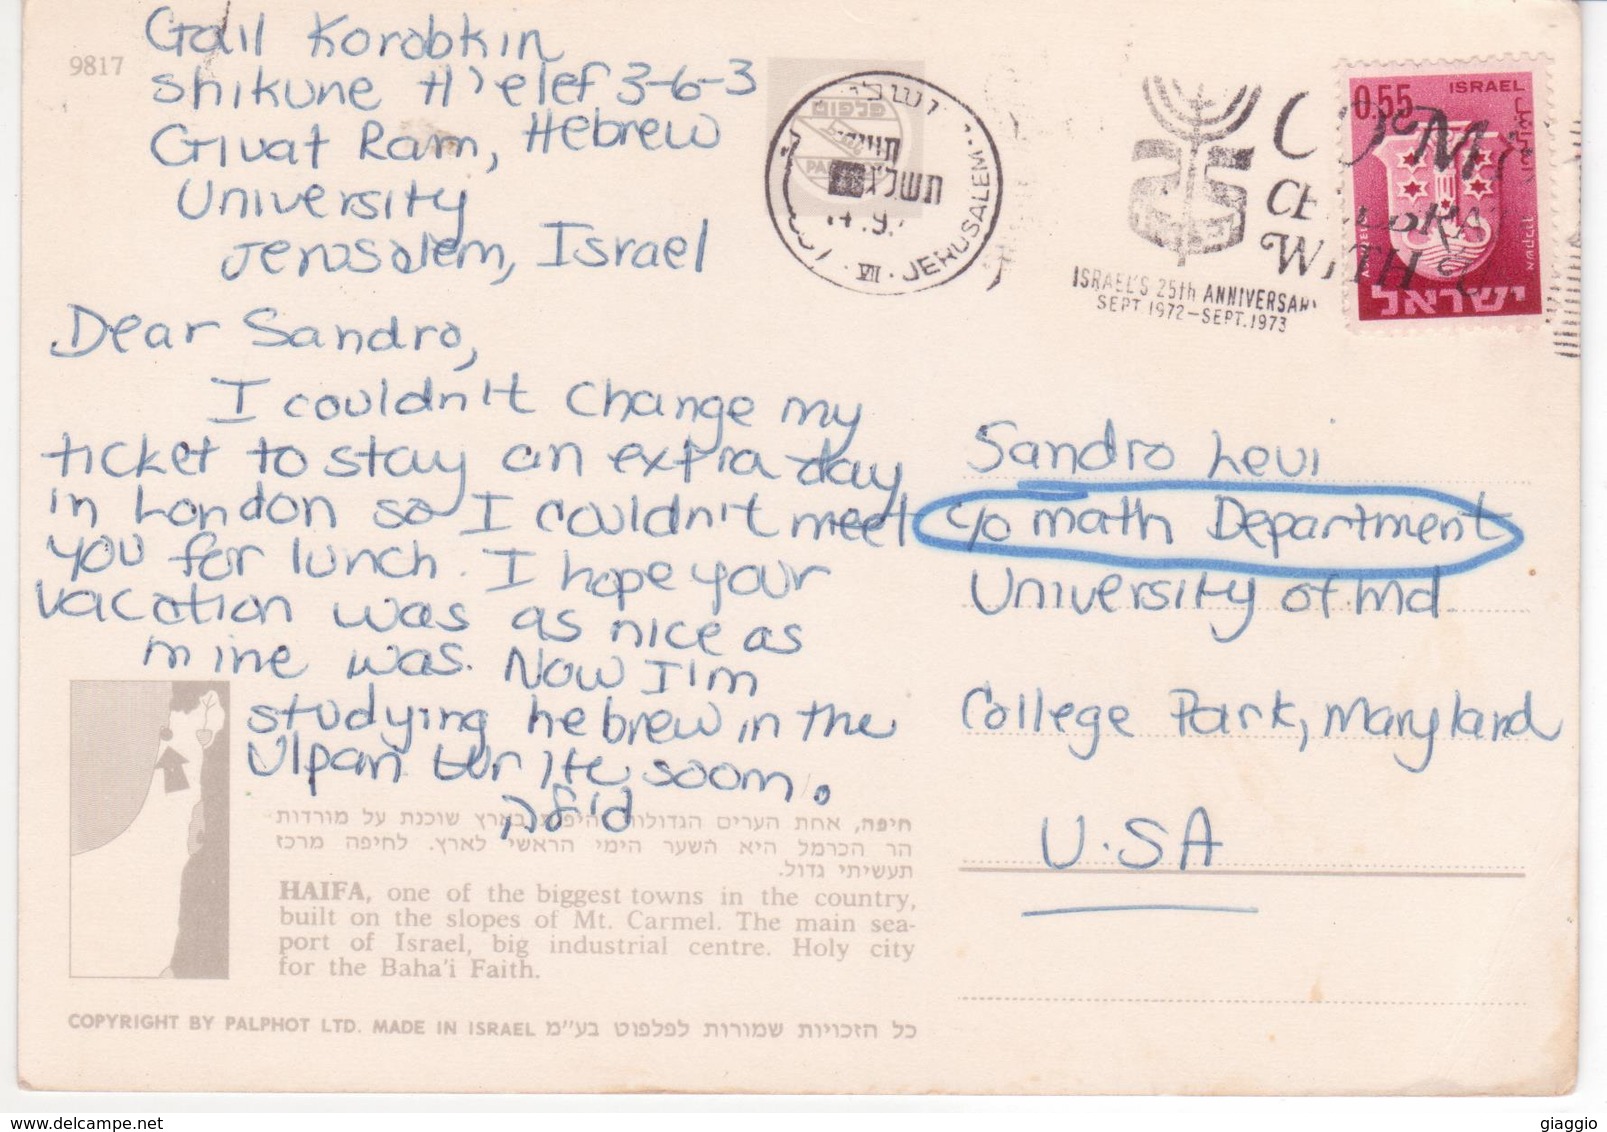 9817
Galil Korobkin
Shikune H'elef 3-6-3
Givat Ram, Hebrew
University
Jerusalem, Israel
Dear Sandro,
I couldn't change my
ticket to stay an extra day
in London so I couldn't meet
you for lunch. I hope your
vacation was as nice as
mine was. Now I'm
studying hebrew in the
Ulpan
soom.
פלפוט
JERUSALEM
VII
תשל"ג
ISRAEL'S 25th ANNIVERSARY
SEPT.1972-SEPT.1973
COME
CELEBRATE
WITH
0.55
ISRAEL
ישראל
Sandro Levi
c/o math Department
University of Md
College Park, Maryland
U.S.A
חיפה, אחת הערים הגדולות והיפות בארץ שוכנת על מורדות
הר הכרמל היא השער הימי הראשי לארץ. לחיפה מרכז
תעשיתי גדול.
HAIFA, one of the biggest towns in the country,
built on the slopes of Mt. Carmel. The main sea-
port of Israel, big industrial centre. Holy city
for the Baha'i Faith.
COPYRIGHT BY PALPHOT LTD. MADE IN ISRAEL כל הזכויות שמורות לפלפוט בע"מ
www.delcampe.net
giaggio